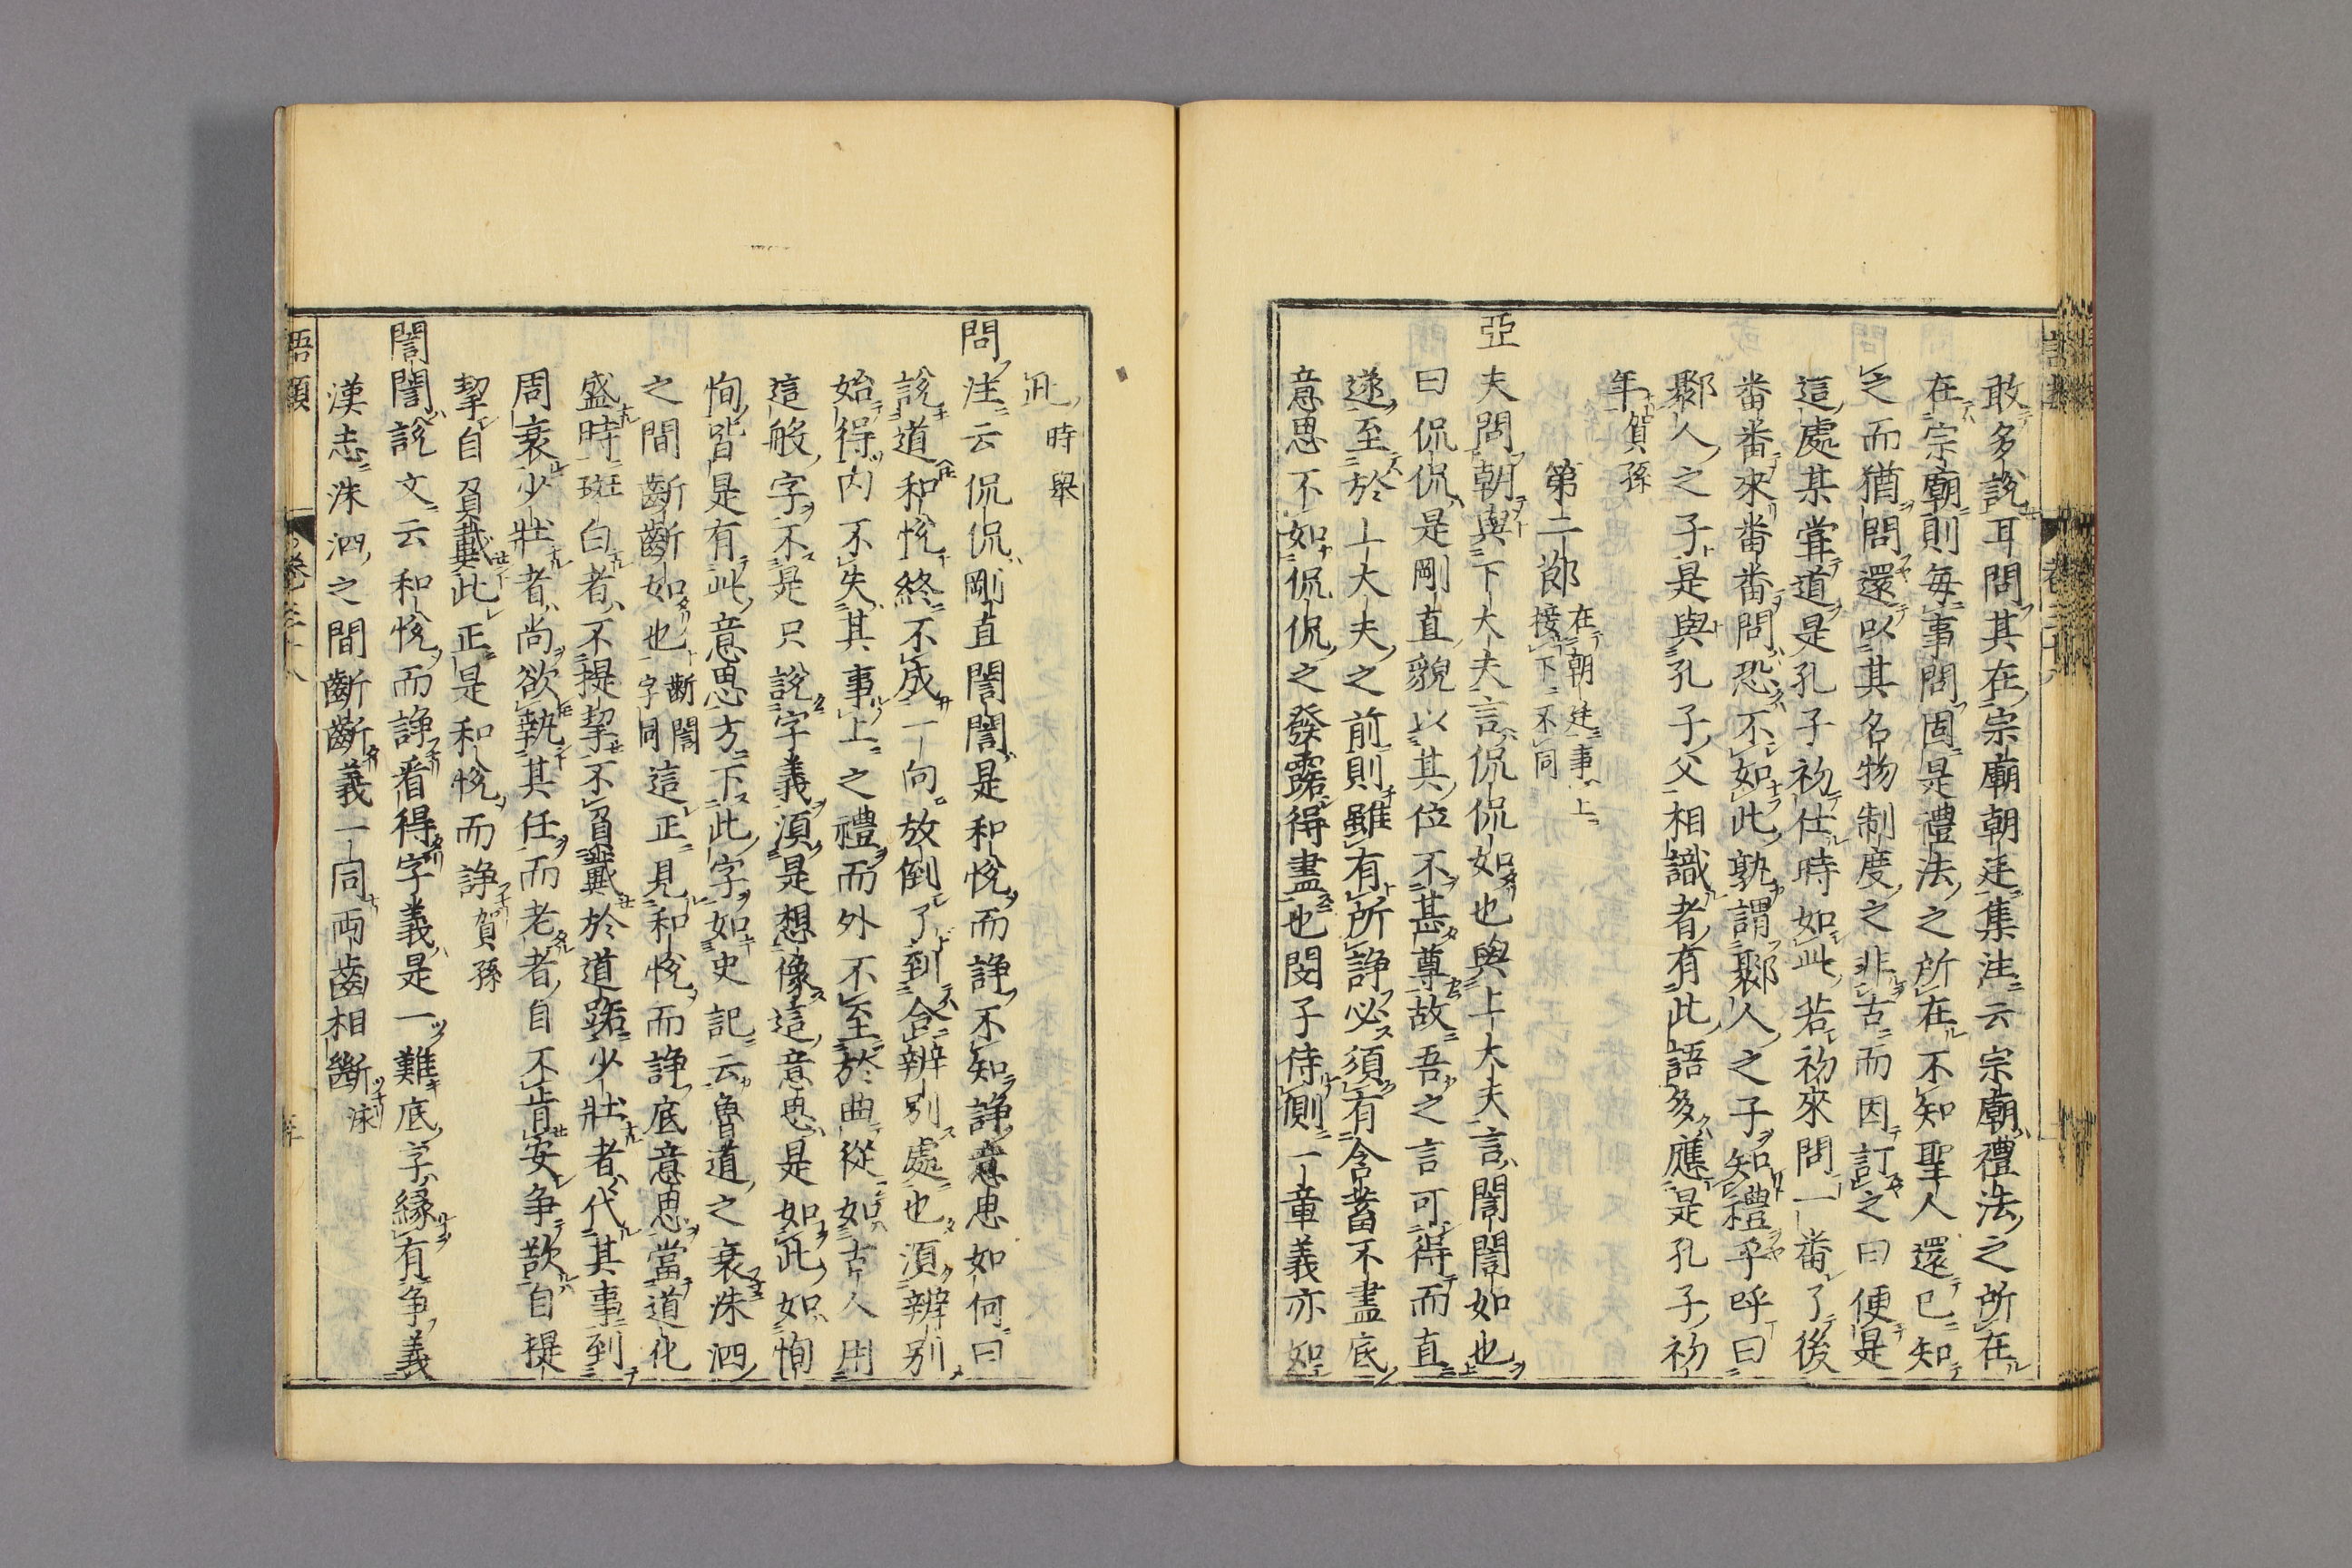 敢多說耳問其在宗廟朝廷集注云宗廟禮法之所在
在宗廟則每事問固是禮法之所在不知聖人還已知
之而猶問還以其名物制度之非古而因訂之曰便是
這處某嘗道是孔子初仕時如此若初來問一番了後
番番來番番問恐不如此孰謂鄹人之子知禮乎呼曰
鄹人之子是與孔子父相識者有此語多應是孔子初
年賀孫
第二節在朝廷事上
接下不同
亞夫問朝與下大夫言侃侃如也與上大夫言誾誾如也
曰侃侃是剛直貌以其位不甚尊故吾之言可得而直
遂至於上大夫之前則雖有所諍必須有含蓄不盡底
意思不如侃侃之發露得盡也閔子侍側一章義亦如
此時舉
問注云侃侃剛直誾誾是和悅而諍不知諍意思如何曰
說道和悅終不成一向放倒了到合辨別處也須辨別
始得內不失其事上之禮而外不至於曲從如古人用
這般字不是只說字義須是想像這意思是如此如恂
恂皆是有此意思方下此字如史記云魯道之衰洙泗
之間齗齗如也齗誾
字同這正見和悅而諍底意思當道化
盛時斑白者不提挈不負戴於道路少壯者代其事到
周衰少壯者尚欲執其任而老者自不肯安争欲自提
挈自負戴此正是和悅而諍賀孫
誾誾說文云和悅而諍看得字義是一難底字緣有争義
漢志洙泗之間齗齗義一同兩齒相齗洙
語類
卷三十八